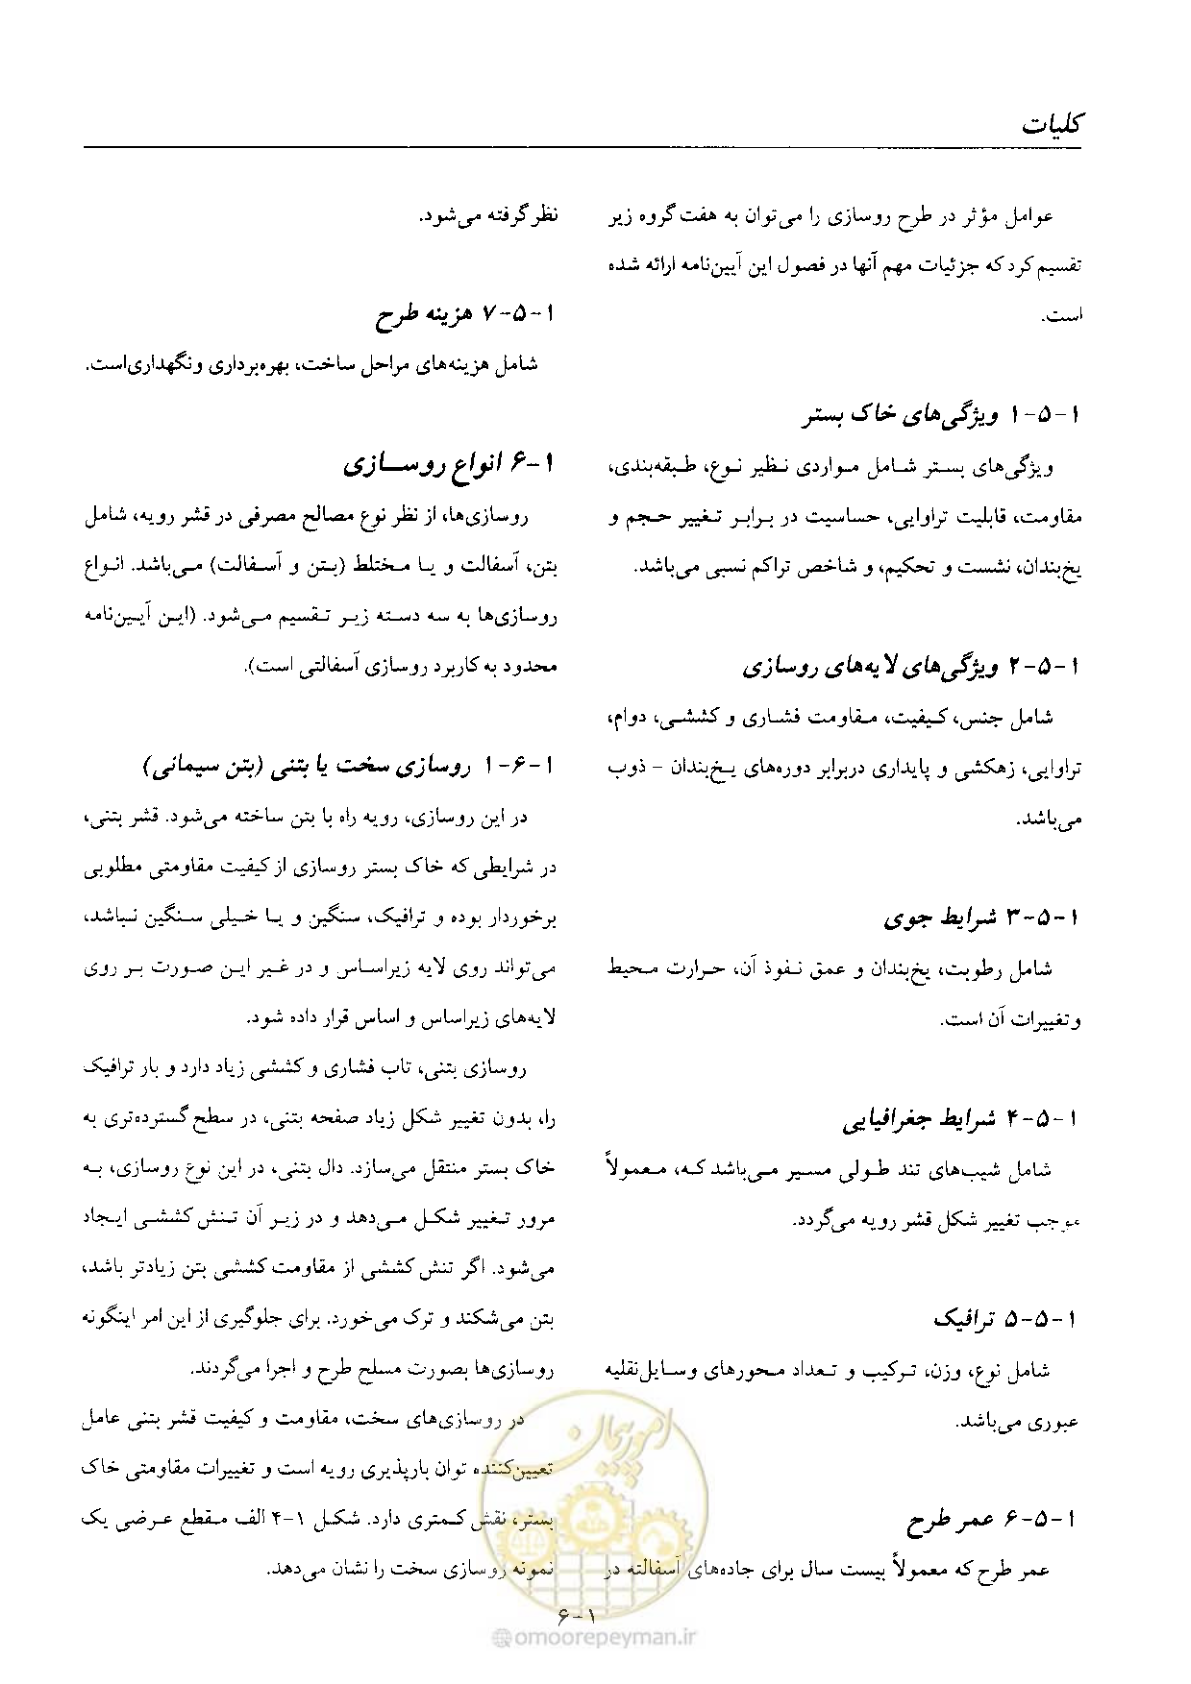 کلیات
عوامل مؤثر در طرح روسازی را می‌توان به هفت گروه زیر
تقسیم کرد که جزئیات مهم آنها در فصول این آیین‌نامه ارائه شده
است.
۱-۵-۱ ویژگی‌های خاک بستر
ویژگی‌های بستر شامل مواردی نظیر نوع، طبقه‌بندی،
مقاومت، قابلیت تراوایی، حساسیت در برابر تغییر حجم و
یخ‌بندان، نشست و تحکیم، و شاخص تراکم نسبی می‌باشد.
۱-۵-۲ ویژگی‌های لایه‌های روسازی
شامل جنس، کیفیت، مقاومت فشاری و کششی، دوام،
تراوایی، زهکشی و پایداری دربرابر دوره‌های یخ‌بندان - ذوب
می‌باشد.
۱-۵-۳ شرایط جوی
شامل رطوبت، یخ‌بندان و عمق نفوذ آن، حرارت محیط
و تغییرات آن است.
۱-۵-۴ شرایط جغرافیایی
شامل شیب‌های تند طولی مسیر می‌باشد که، معمولاً
موجب تغییر شکل قشر رویه می‌گردد.
۱-۵-۵ ترافیک
شامل نوع، وزن، ترکیب و تعداد محورهای وسایل‌نقلیه
عبوری می‌باشد.
۱-۵-۶ عمر طرح
عمر طرح که معمولاً بیست سال برای جاده‌های آسفالته در
نظر گرفته می‌شود.
۱-۵-۷ هزینه طرح
شامل هزینه‌های مراحل ساخت، بهره‌برداری و نگهداری است.
۱-۶ انواع روسازی
روسازی‌ها، از نظر نوع مصالح مصرفی در قشر رویه، شامل
بتن، آسفالت و یا مختلط (بتن و آسفالت) می‌باشد. انواع
روسازی‌ها به سه دسته زیر تقسیم می‌شود. (این آیین‌نامه
محدود به کاربرد روسازی آسفالتی است).
۱-۶-۱ روسازی سخت یا بتنی (بتن سیمانی)
در این روسازی، رویه راه با بتن ساخته می‌شود. قشر بتنی،
در شرایطی که خاک بستر روسازی از کیفیت مقاومتی مطلوبی
برخوردار بوده و ترافیک، سنگین و یا خیلی سنگین نباشد،
می‌تواند روی لایه زیراساس و در غیر این صورت بر روی
لایه‌های زیراساس و اساس قرار داده شود.
روسازی بتنی، تاب فشاری و کششی زیاد دارد و بار ترافیک
را، بدون تغییر شکل زیاد صفحه بتنی، در سطح گسترده‌تری به
خاک بستر منتقل می‌سازد. دال بتنی، در این نوع روسازی، به
مرور تغییر شکل می‌دهد و در زیر آن تنش کششی ایجاد
می‌شود. اگر تنش کششی از مقاومت کششی بتن زیادتر باشد،
بتن می‌شکند و ترک می‌خورد. برای جلوگیری از این امر اینگونه
روسازی‌ها بصورت مسلح طرح و اجرا می‌گردند.
در روسازی‌های سخت، مقاومت و کیفیت قشر بتنی عامل
تعیین‌کننده توان باربپذیری رویه است و تغییرات مقاومتی خاک
بستر، نقش کمتری دارد. شکل ۱-۴ الف مقطع عرضی یک
نمونه روسازی سخت را نشان می‌دهد.
امور پیمان
۱-۶
@omoorepeyman.ir